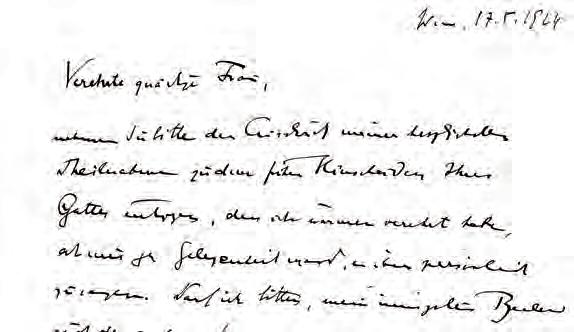 Wien, 17.5.1924
Verehrte gnädige Frau,
nehmen Sie bitte den Ausdruck meiner herzlichsten
Theilnahme zu dem frühen Hinscheiden Ihres
Gatten entgegen, den ich immer verehrt habe,
ohne Gelegenheit ward, es ihm persönlich
zu sagen. Darf ich bitten, mein innigstes